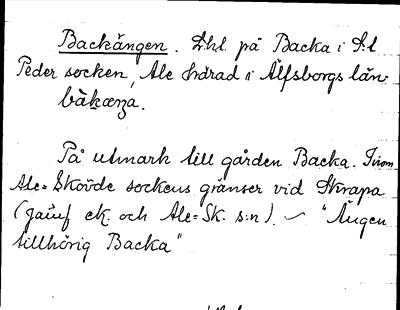 Backängen. Lhl. på Backa i S:t
Peder socken, Ale härad i Älfsborgs län.
bàkæŋa.
På utmark till gården Backa. Inom
Ale=Skövde sockens gränser vid Skrapa
(jämf ek. och Ale=Sk. s:n). – "Ängen
tillhörig Backa"